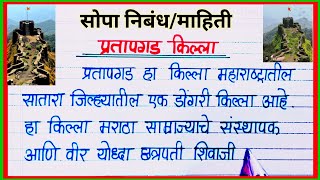 सोपा निबंध/माहिती
प्रतापगड किल्ला
प्रतापगड हा किल्ला महाराष्ट्रातील
सातारा जिल्ह्यातील एक डोंगरी किल्ला आहे.
हा किल्ला मराठा साम्राज्याचे संस्थापक
आणि वीर योध्दा छत्रपती शिवाजी